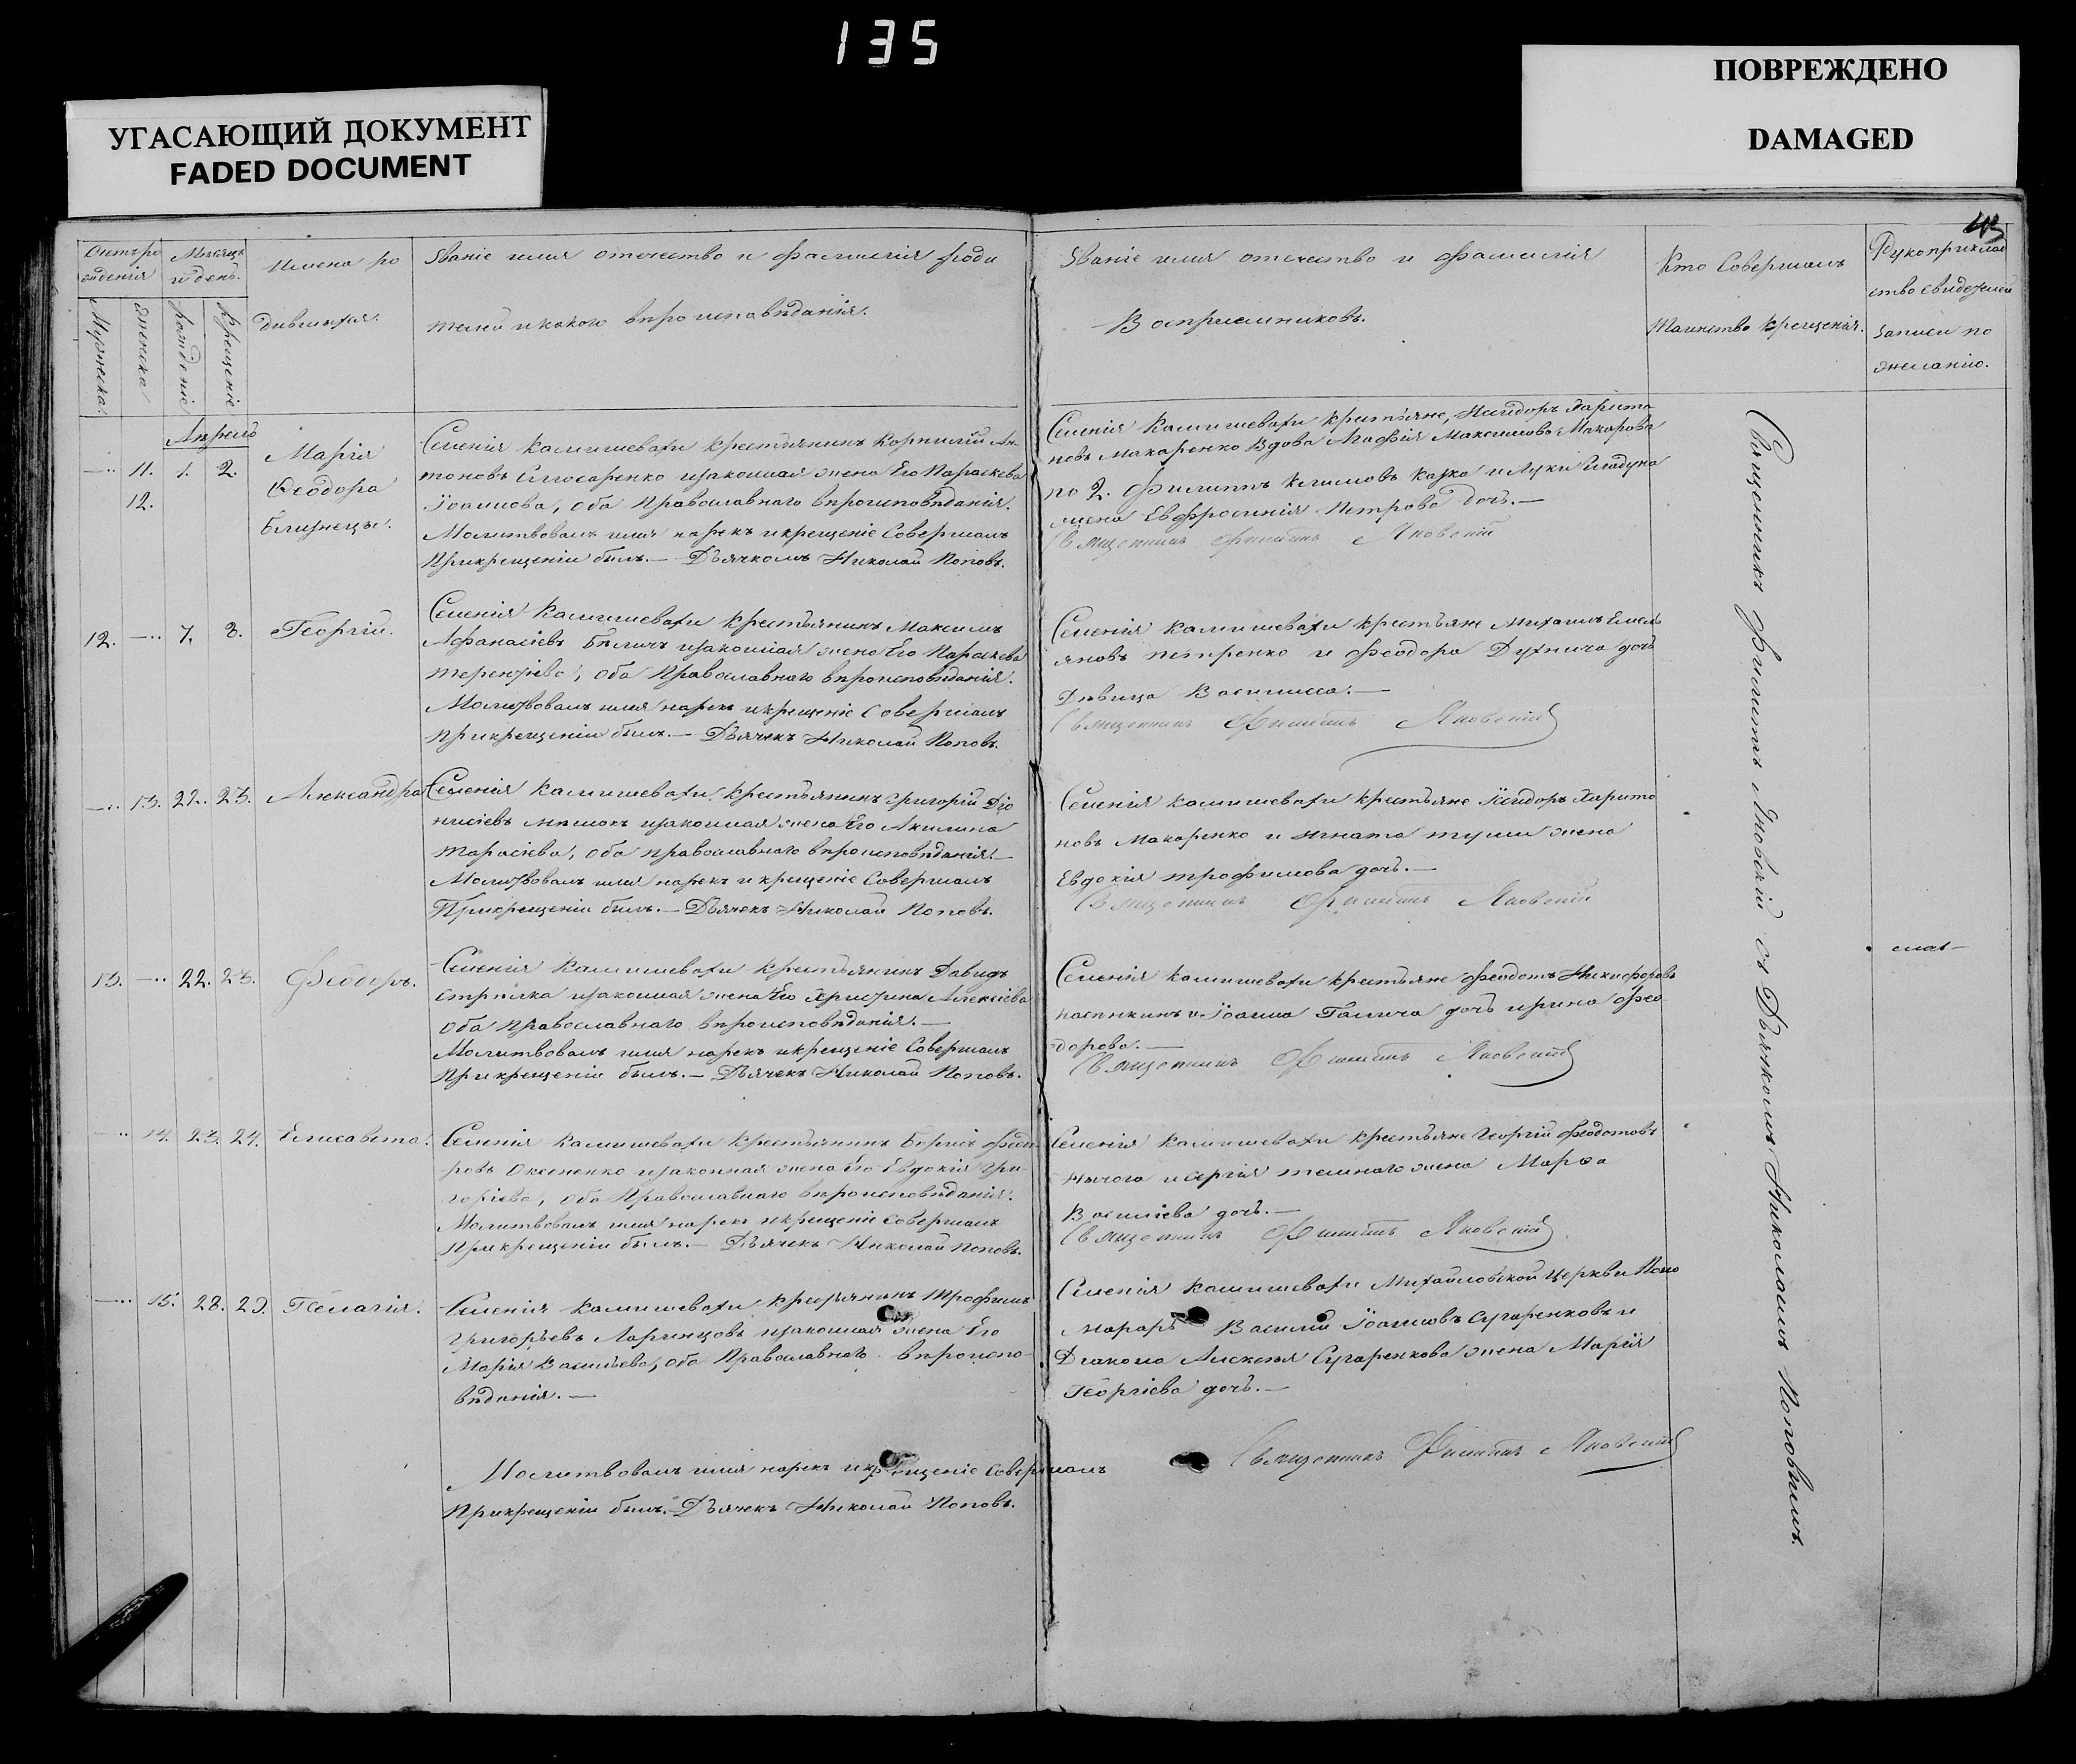 135
УГАСАЮЩИЙ ДОКУМЕНТ
FADED DOCUMENT
ПОВРЕЖДЕНО
DAMAGED
Счетъ ро
жденія
Мѣсяцъ
и день.
Имена ро
дившихся.
Званіе имя отечество и фамилія роди
телей и какого вѣроисповѣданія.
Званіе имя отечество и фамилія
Воспріемниковъ.
Кто Совершалъ
Таинство крещенія.
Рукоприклад
ство свидетелей
записи по
желанію.
Мужеска.
Женска
Рожденіе
Крещеніе
Апрель
11. 1. 2.
12.
Марія
Феодора
Близнецы.
Селенія Камишевахи крестьянинъ Корнилій Ан
тоновъ Слюсаренко изаконная жена Его Параскева
Іоаннова, оба Православнаго вѣроисповѣданія.
Молитвовалъ имя нарекъ икрещеніе Совершалъ
Прикрещеніи былъ.— Дьячкомъ Николай Поповъ.
Селенія Камишевахи крестьяне, Исидоръ Харито
новъ Макаренко Вдова Агафія Максимова Макарова
по 2. Филиппъ Климовъ Казка и Луки Гладуна
жена Евфросинія Петрова дочь.—
Священникъ Филиппъ Яновскій
12. 7. 8. Георгій.
Селенія Камишевахи крестьянинъ Максимъ
Афанасіевъ Билычъ изаконная жена Его Параскева
терентіева, оба Православнаго вѣроисповѣданія.
Молитвовалъ имя нарекъ икрещеніе Совершалъ
прикрещеніи былъ.— Дьячекъ Николай Поповъ.
Селенія Камишевахи крестьяне Михаилъ Емель
яновъ петренко и Феодора Духнича дочь
Дѣвица Василиса.—
Священникъ Филиппъ Яновскій
13. 22. 23. Александра
Селенія Камишевахи крестьянинъ Григорій Діо
нисіевъ мишокъ изаконная жена Его Акилина
тарасіева, оба православнаго вѣроисповѣданія.—
Молитвовалъ имя нарекъ и крещеніе Совершалъ
Прикрещеніи былъ.— Дьячекъ Николай Поповъ.
Селенія камишевахи крестьяне Ісидоръ Харито
новъ Макаренко и игната туши жена
Евдокія трофимова дочь.—
Священникъ Филиппъ Яновскій
13. 22. 23. Феодоръ.
Селенія Камишевахи крестьянинъ Давидъ
стрѣлка изаконная жена Его Христина Алексіева
Оба Православнаго вѣроисповѣданія.—
Молитвовалъ имя нарекъ икрещеніе Совершалъ
Прикрещеніи былъ.— Дьячекъ Николай Поповъ.
Селенія камишевахи крестьяне Феодотъ Никифоровъ
пасынкинъ и Іоанна Галича дочь ирина Фео
дорова.—
Священникъ Филиппъ Яновскій
14. 23. 24. Елисавета.
Селенія Камишевахи крестьянинъ Сергій Федо
ровъ Оксененко изаконная жена Его Евдокія Гри
горіева, оба Православнаго вѣроисповѣданія.
Молитвовалъ имя нарекъ икрещеніе Совершалъ
Прикрещеніи былъ.— Дьячекъ Николай Поповъ.
Селенія Камишевахи крестьяне Георгій Феодотовъ
и сергія темнаго жена Марфа
Василіева дочь.—
Священникъ Филиппъ Яновскій
15. 28. 29. Пелагія.
Селенія Камишевахи крестьянинъ Трофимъ
Григорьевъ Ларинцовъ изаконная жена Его
Марія Васильева, оба Православнаго вѣроиспо-
вѣданія.—
Молитвовалъ имя нарекъ икрещеніе Совершалъ
Прикрещеніи былъ.— Дьячекъ Николай Поповъ.
Селенія Камишевахи Михайловской Церкви Поно
марарь Василій Іоанновъ Сухаренковъ и
Діакона Алексѣя Сухаренкова жена Марія
Георгіева дочь.—
Священникъ Филиппъ Яновскій
Священникъ Филиппъ Яновскій съ Дьячкомъ Николаемъ Поповымъ.